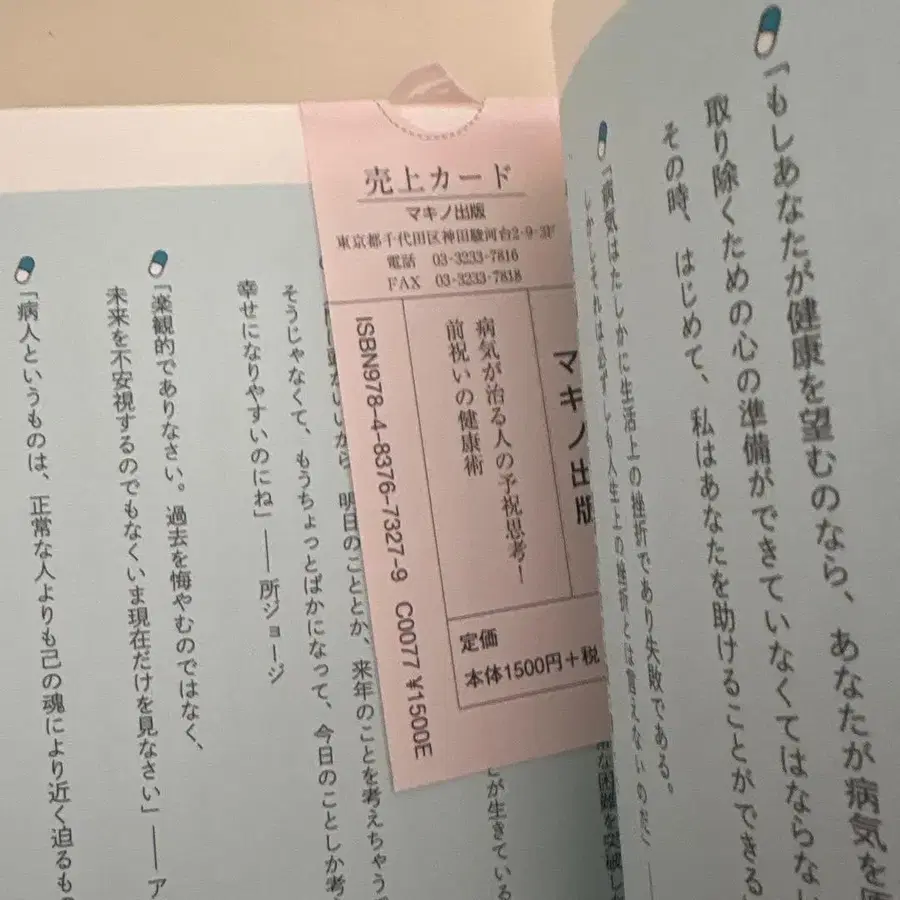 「もしあなたが健康を望むのなら、あなたが病気を
取り除くための心の準備ができていなくてはならない
その時、はじめて、私はあなたを助けることができる
「病気はたしかに生活上の挫折であり失敗である。
しかしそれは必ずしも人生上の挫折とは言えないのだ
売上カード
マキノ出版
東京都千代田区神田駿河台2-9-3F
電話 03-3233-7816
FAX 03-3233-7818
マキノ出版
病気が治る人の予祝思考!
前祝いの健康術
ISBN978-4-8376-7327-9 C0077 ¥1500E
定価
本体1500円+税
が生きている
明日のこととか、来年のことを考えちゃう
そうじゃなくて、もうちょっとばかになって、今日のことしか考
幸せになりやすいのにね」──所ジョージ
「楽観的でありなさい。過去を悔やむのではなく、
未来を不安視するのでもなくいま現在だけを見なさい」──ア
「病人というものは、正常な人よりも己の魂により近く迫るも